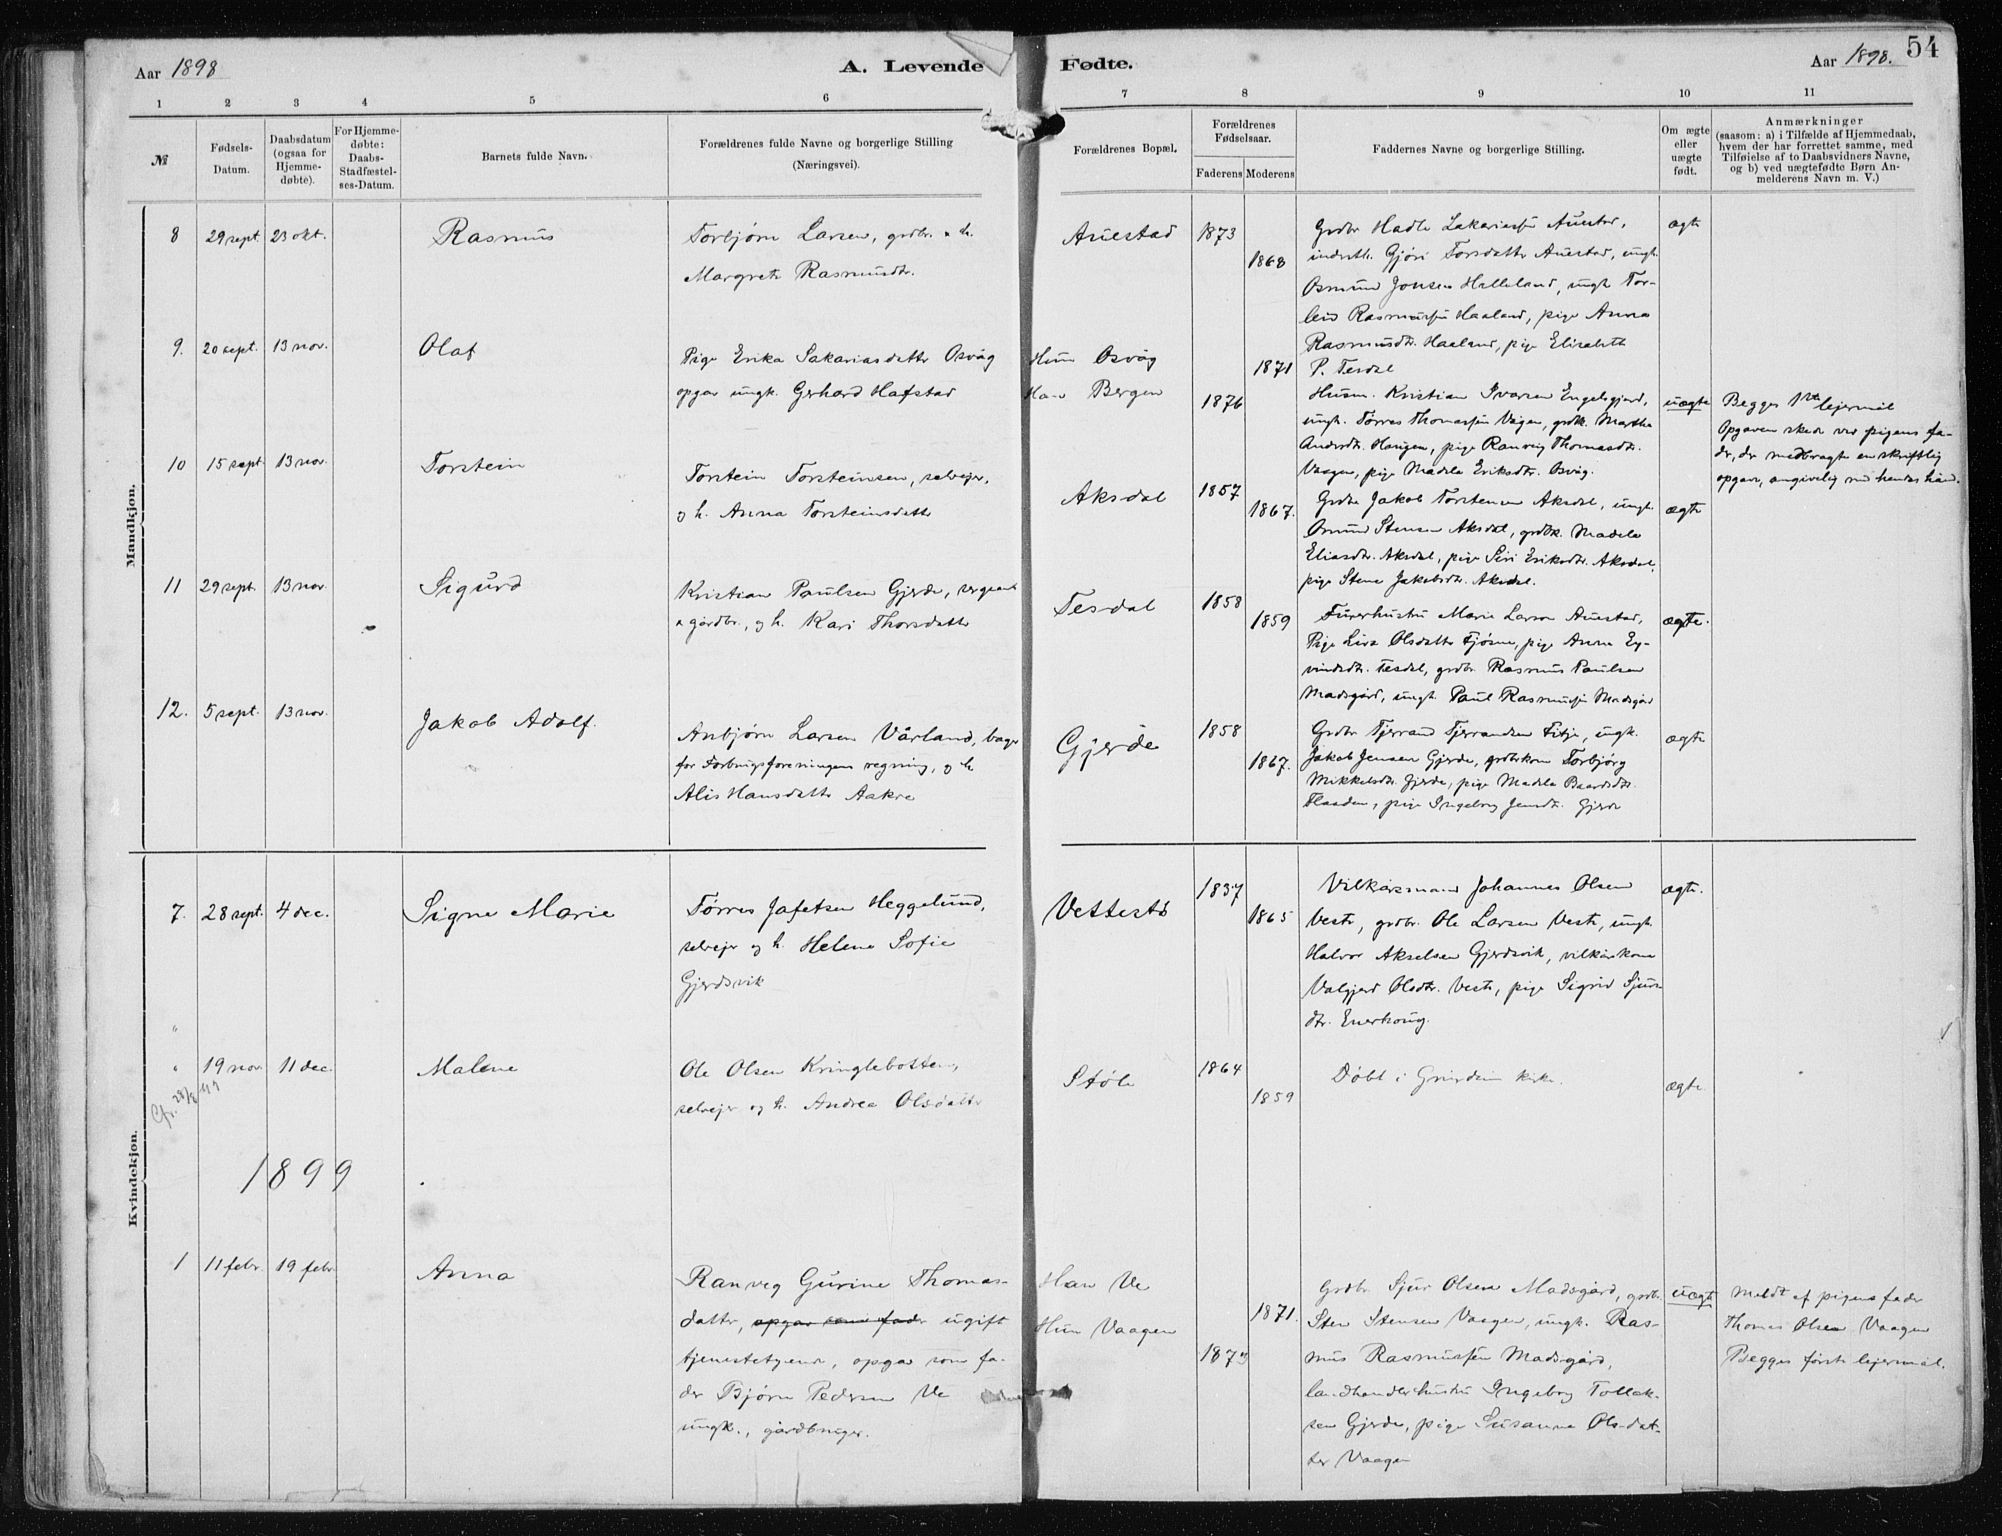 Aar 1898
A. Levende Fødte.
Aar 1898.
54
1 2 3 4 5 6 7 8 9 10 11
№
Fødsels-Datum.
Daabsdatum (ogsaa for Hjemme-døbte).
For Hjemme-døbte: Daabs-Stadfæstel-ses-Datum.
Barnets fulde Navn.
Forældrenes fulde Navne og borgerlige Stilling (Næringsvei).
Forældrenes Bopæl.
Forældrenes Fødselsaar.
Faderens Moderens
Faddernes Navne og borgerlige Stilling.
Om ægte eller uægte født.
Anmærkninger
(saasom: a) i Tilfælde af Hjemmedaab,
hvem der har forrettet samme, med
Tilføielse af to Daabsvidners Navne,
og b) ved uægtefødte Børn An-
melderens Navn m. V.)
Mandkjøn.
8 29 sept. 23 okt. Rasmus
Torbjørn Larsen, grdbr. & h.
Margrete Rasmusdtr.
Auestad 1873
1868
Grdbr Hadle Sakariasen Auestad,
inderstk. Gjøri Torsdatter Auestad, ungk.
Osmund Jonsen Helleland, ungk Tor-
leiv Rasmussen Haaland, pige Anna
Rasmusdtr. Haaland, pige Elisabeth
P. Tesdal
ægte
9. 20 sept. 13 nov. Olaf
Pige Erika Sakariasdatter Osvåg
opgav ungk. Gerhard Hafstad
Hun Osvåg
Han Bergen
1871
1876
Husm. Kristian Ivarsen Engelsgjerd,
ungk. Tørres Thomassen Vågen, grdbk. Martha
Andersdtr. Haugen, pige Ranveig Thomasdtr.
Vaagen, pige Madela Eriksdtr. Osvåg.
uægte
Begges 1ste lejermål
Opgaven skede ved pigens fa-
der, der medbragte en skriftlig
opgave, angivelig med hendes hånd.
10 15 sept. 13 nov. Torstein
Torstein Torsteinsen, selvejer,
og h. Anna Torsteinsdatter
Aksdal 1857
1867.
Grdbr Jakob Torstensen Aksdal, ungk.
Osmund Stensen Aksdal, grdbk. Madela
Eliasdtr. Aksdal, pige Siri Eriksdtr. Aksdal,
pige Stena Jakobsdtr. Aksdal.
ægte
11 29 sept. 13 nov. Sigurd
Kristian Paulsen Gjerde, sergeant
& gårdbr., og h. Kari Thorsdatter
Tesdal 1858
1859
Furerhustru Marie Larsen Auestad,
Pige Lisa Olsdatter Fjøsne, pige Anna Ey-
vindsdtr. Tesdal, grdbr. Rasmus Paulsen
Madsgård, ungk. Paul Rasmussen Madsgård
ægte.
12. 5 sept. 13 nov. Jakob Adolf.
Anbjørn Larsen Vårland, bager
for Forbrugsforeningens regning, og h.
Alis Hansdatter Aakre
Gjerde 1858
1867.
Grdbr Tjerrand Tjerrandsen Fitje, ungk.
Jakob Jensen Gjerde, grdbrkone Torbjørg
Mikkelsdtr. Gjerde, pige Madela Baardsdtr.
Flaaden, pige Ingeborg Jensdtr. Gjerde
ægte
Kvindekjøn.
7. 28 sept. 4 dec. Signe Marie
Tørres Jafetsen Heggelund,
selvejer og h. Helene Sofie
Gjerdsvik
Vettestø 1837
1865
Vilkårsmand Johannes Olsen
Vestre, grdbr. Ole Larsen Vestre, ungk.
Halvor Akselsen Gjerdsvik, vilkårskone
Valgjerd Olsdtr. Vestre, pige Sigrid Sjurs-
dtr. Enerhaug.
ægte.
"
" 19 nov. 11 dec. Malene
Cfr. 28/8 99
Ole Olsen Kringlebotten,
selvejer og h. Andrea Olsdatter
Støle 1864
1859
Døbt i Grindeim kirke.
ægte
1899
1 11 febr. 19 febr. Anna
Ranveg Gurine Thomas-
datter, opgav som fader ugift
tjenestetyende, opgav som fa-
der Bjørn Pedersen Ve
ungk., gårdbruger.
Han Ve
Hun Vaagen
1871.
1873
Grdbr. Sjur Olsen Madsgård, grdb.
Sten Stensen Vaagen, ungk. Ras-
mus Rasmussen Madsgård,
landhandlerhustru Ingeborg Tollak-
sen Gjerde, pige Susanna Ols-dat-
ter Vaagen
uægte
Meldt af pigens fader
Thomas Olsen Vaagen
Begges første lejermål.